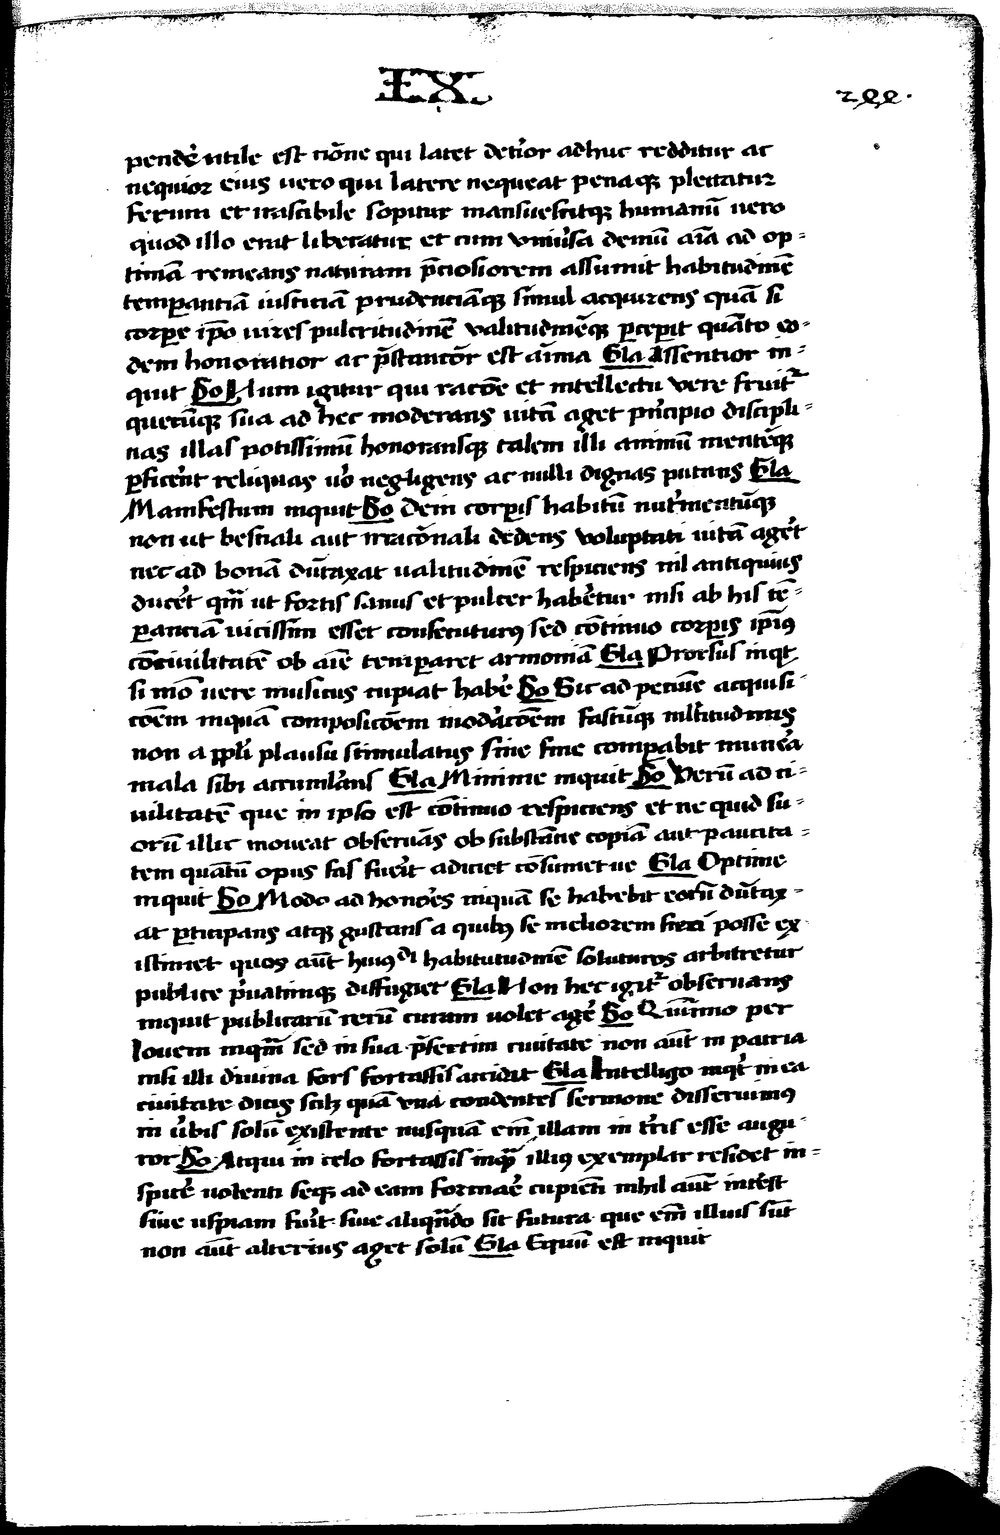 EX.
288.
pendē utile est nōne qui latet det'ior adhuc redditur ac
nequior eius uero qui latere nequeat penaqꝫ plectatur
ferum et irascibile sopitur mansuescitqꝫ humanū uero
quod illo erat liberatur et cum vniu'sa demū aīa ad op=
timā remeans naturam p̄ciosiorem assumit habitudinē
temperantiā iusticiā prudenciāqꝫ simul acquirens quā si
corpore ip̄o uires pulcritudinē valitudinēqꝫ p̱cepit quāto eo=
dem honoratior ac p̄stancior est aīma Gla Assentior in=
quit So Num igitur qui racōe et intellectu vere fruitr
quecūqꝫ sua ad hec moderans uitā aget principio discipli=
nas illas potissimū honoransqꝫ talem illi animū mentēqꝫ
p̱ficent reliquas uo negligens ac nulli dignas putans Gla
Manifestum inquit So Dein corp̱is habitū nut'mentūqꝫ
non ut bestiali aut irracōnali dedens voluptati uitā aget
nec ad bonā dūtaxat ualitudinē respiciens nil antiquius
ducēt qm̄ ut fortis sanus et pulcer habetur nisi ab his tē=
p̱antiā uicissim esset consecuturꝰ sed cōtinuo corp̱is ipīꝰ
cōciuilitatē ob aīe temperaret armoniā Gla Prorsus inqt
si mō uere musicus cupiat habe' So Sic ad pecunie acquisi=
cōem inquā composicōem moderacōem fastūqꝫ mltitudinis
non a ppli plausu stimulatus sine fine comparabit munera
mala sibi accumlans Gla Minime inquit So Verū ad ci=
uilitatē que in ipso est cōtinuo respiciens et ne quid su=
orū illic moueat obseruās ob substātie copiā aut paucita=
tem quātū opus fas fuerit adiciet cōsumetue Gla Optime
inquit So Modo ad honores inquā se habebit eorū dūtax=
at p̱ticipans atqꝫ gustans a quibꝫ se meliorem fieri posse ex
istimet quos aūt huiꝰ habitudinē soluturos arbitretur
publice p'uatimqꝫ diffugiet Gla Non hec igitr obseruans
inquit publicarū rerū curam uolet age' So Quīmmo per
Iouem inqm̄ sed in sua p̄sertim ciuitate non aūt in patria
nisi illi diuina fors fortassis accidat Gla Intelligo inqt in ea
ciuitate dicis scilꝫ quā una condentes sermone disseruimꝰ
in ūbis solū existente nusquā em̄ illam in tris esse augu=
ror So Atqui in celo fortassis inq̄ illiꝰ exemplar residet in=
spice' uolenti seqꝫ ad eam formare cupienti nihil aūt int'est
siue uspiam fuit siue aliquādo sit futura que em̄ illius sūt
non aūt alterius aget solū Gla Equū est inquit